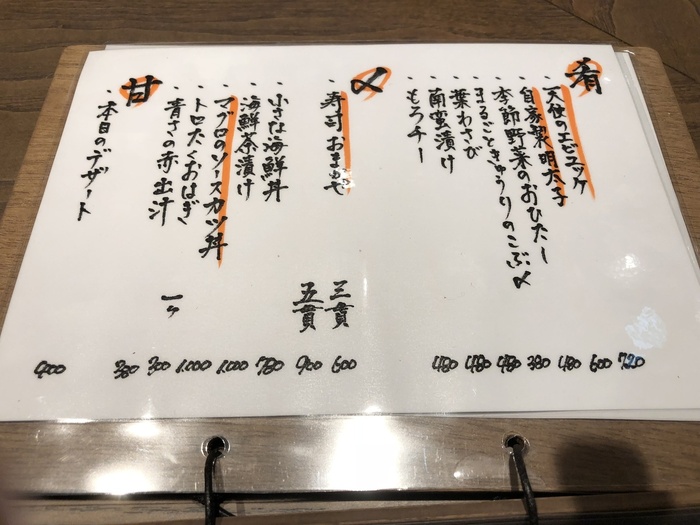 肴
・天使のエビユッケ 720
・自家製明太子 600
・季節野菜のおひたし 480
・まるごときゅうりのこぶ〆 380
・葉わさび 480
・南蛮漬け 480
・もろチー 480
〆
・寿司おまかせ 三貫 600
五貫 900
・小さな海鮮丼 780
・海鮮茶漬け 1,000
・マグロのソースカツ丼 1,000
・トロたくおはぎ 一ヶ 300
・青さの赤出汁 380
甘
・本日のデザート